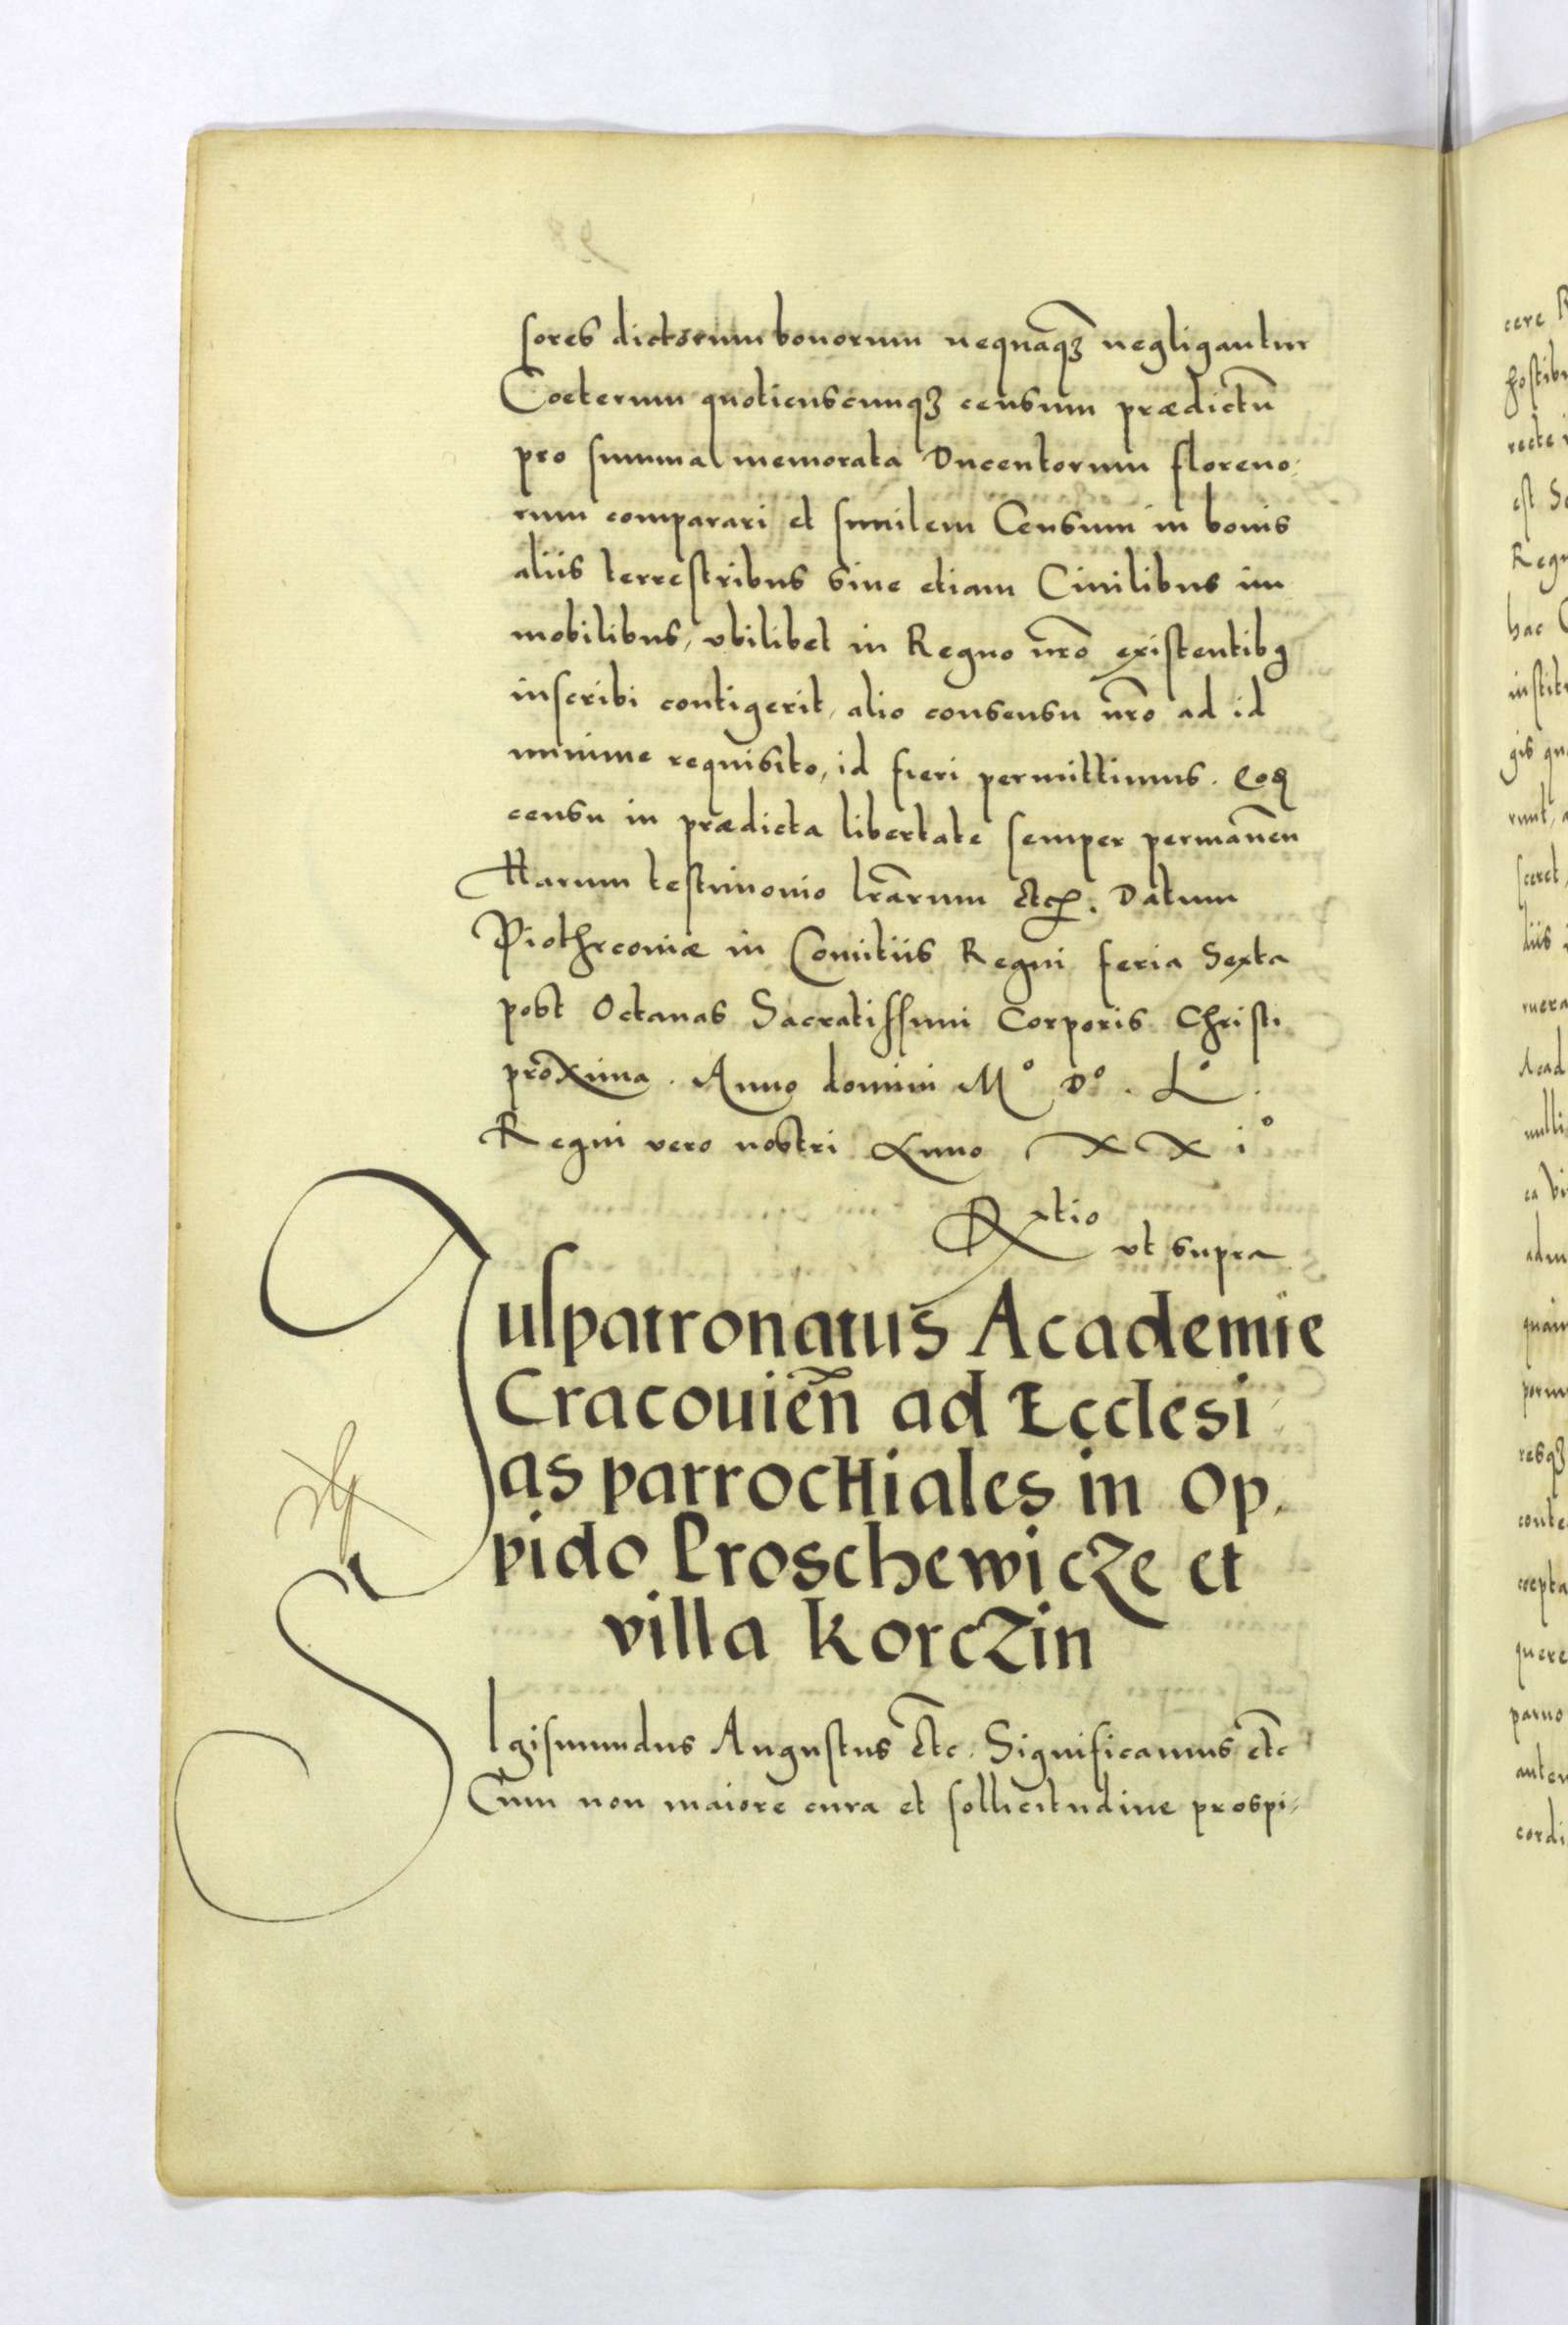 sores dictorum bonorum nequaq̃ʒ negligantur
Coeterum quotienscunqʒ censum prædictũ
pro summa memorata Ducentorum floreno⸗
rum comparari et similem Censum in bonis
aliis terrestribus siue etiam Ciuilibus im
mobilibus, vbilibet in Regno nr̃o existentibꝰ
inscribi contigerit, alio consensu nr̃o ad id
minime requisito, id fieri permittimus. Eoqꝫ
censu in prædicta libertate semper permãnen
Harum testimonio lr̃arum etc. Datum
Piothrconiæ in Comitiis Regni feria Sexta
post Octauas Sacratissimi Corporis Christi
proxima. Anno domini Mº Dº. Lº.
Regni vero nostri Anno XXiº
Rtio
vt supra
Iuspatronatus Academie
Cracouien̄ ad Ecclesi
as parrochiales in Op⸗
pido Proschewicze et
villa Korczin
Sigismundus Augustus etc. Significamus etc
Cum non maiore cura et sollicitudine prospi⸗
cere
hostibu
recte
est
Regn
hac
institu
gis qu
runt,
sceret
diis
uera
Acad
nulli
ca
adm
quam
perm
resqʒ
conte
coepta
quere
paruo
autem
cordi